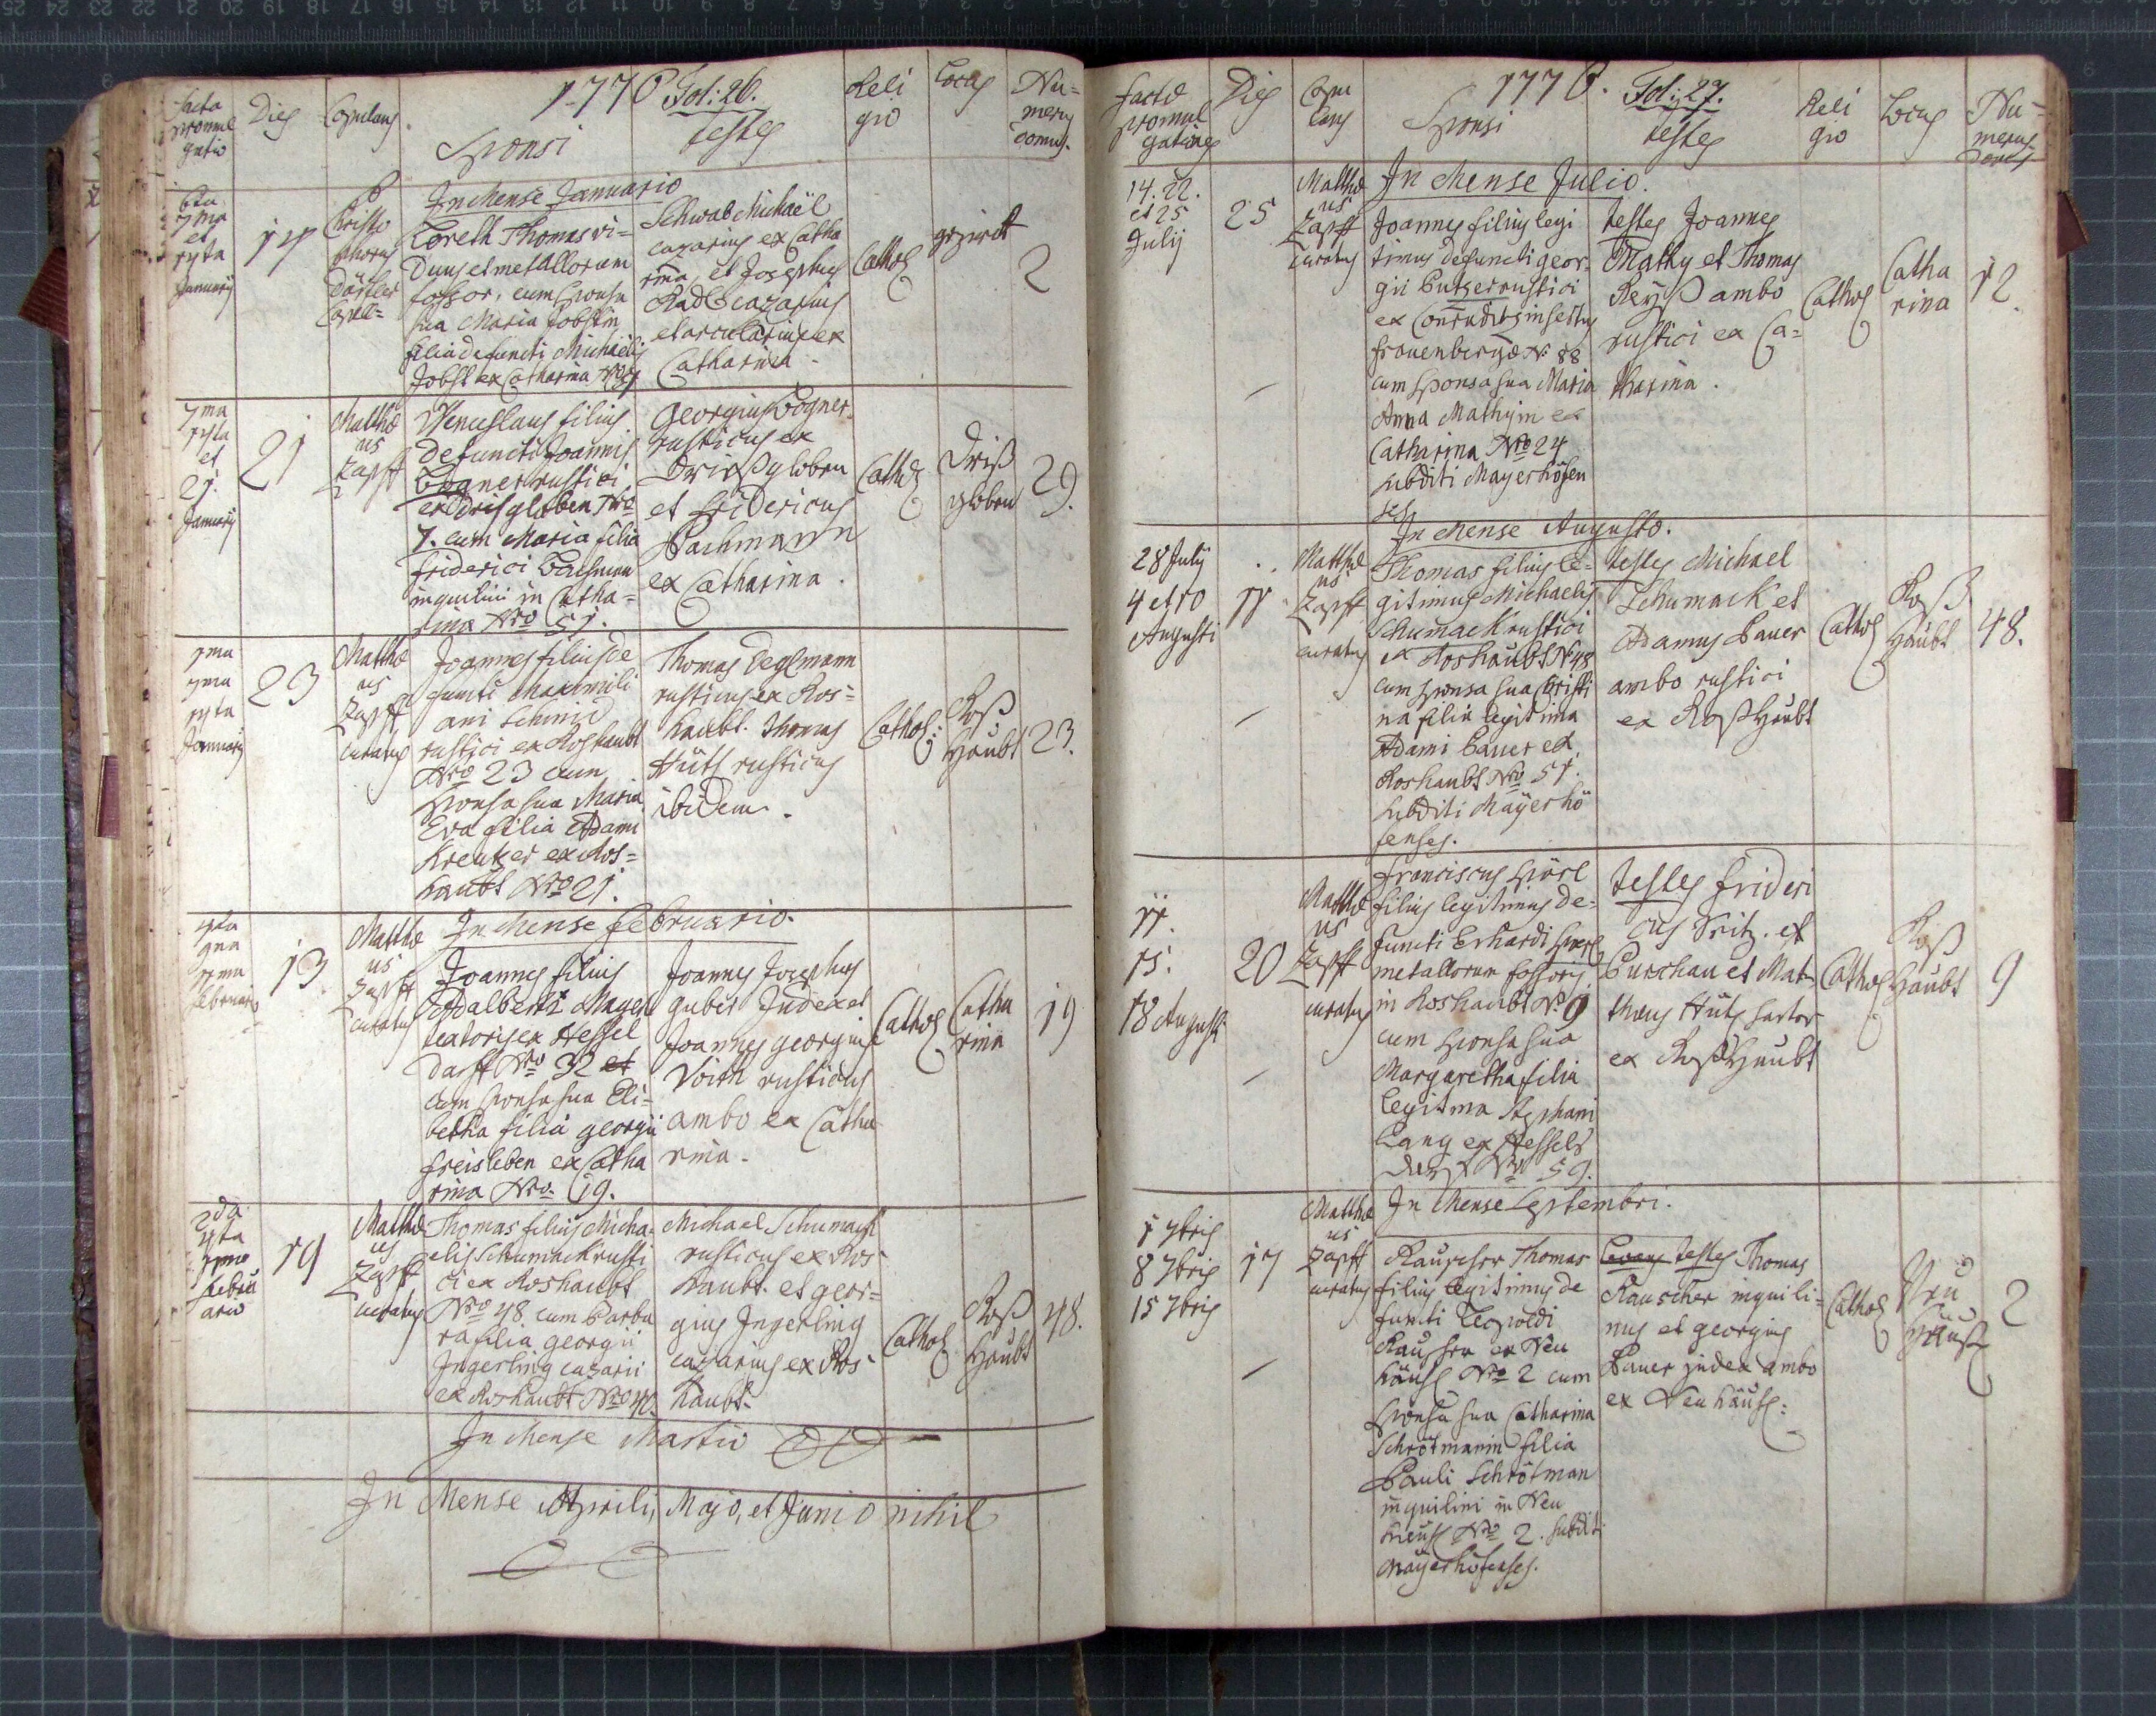 1776 Fol: 26.
facta
promul
gatio
Dies
Copulans
Sponsi
testes
Reli
gio
Locus
Nu=
merus
domus.
In Mense Januario
6ta
et
January
14
P
Christo
phorus
Capell=
Loreth Thomas vi=
duus et metallorum
fossor, cum sponsa
sua Maria Jobstin
filia defuncti Michaelis
Jobst ex Catharina
Schwab Michaël
cazarius ex Catha
rina, et Josephus
Radl cazarius
et arcularius ex
Catharina
Cathol
2
7ma
et
21.
January
21
Matthæ
us
Zapff
Wenceslaus filius
defuncti Joannis
Bogner rustici
ex Drißgloben Nro
7. cum Maria filia
Friderici Bachman
inquilini in Catha=
rina Nro 51.
Georgius Bogner
rusticus ex
Drißgloben
et Fridericus
Bachmann
ex Catharina.
Cathol
Driß
globen
29.
January
23
Matthæ
us
Zapff
curatus
Joannes filius de
functi Maximili
ani Schmid
rustici ex Roshaubt
Nro 23 cum
sponsa sua Maria
Eva filia Adami
Kreutzer ex Ros=
haubt Nro 21.
Thomas Deglmann
rusticus ex Ros=
haubt. Thomas
Hüttl rusticus
ibidem.
Cathol:
Roß
Haubt
23.
In Mense Februario.
Februario
13
Matthæ
us
Zapff
curatus
Joannes filius
Adalberti Mayer
textoris ex Hessel
dorff Nro 32 et
cum sponsa sua Eli=
betha filia Georgii
Freisleben ex Catha
rina Nro. 19.
Joannes Josephus
Gubir Judex et
Joannes Georgius
Voith rusticus
ambo ex Catha
rina.
Cathol
Catha
rina
19
2da
4ta
Febru
ario
19
Matthæ
us
Zapff
curatus
Thomas filius Micha=
elis Schumack rusti
ci ex Roshaubt
Nro 48. cum Barba
ra filia Georgii
Ingerling cazarii
ex Roshaubt Nro 40.
Michael Schumack
rusticus ex Ros
haubt. et Geor=
gius Ingerling
cazarius ex Ros
haubt.
Cathol
Roß
Haubt
48.
In Mense Martio
In Mense Aprili, Majo, et Junio nihil
1776. Fol: 27.
factæ
promul
gationes
Dies
Copu
lans
Sponsi
testes
Reli
gio
Locus
Nu=
merus
domus
In Mense Julio.
14. 22.
et 25
July
25
Matthæ
us
Zapff
curatus
Joannes filius legi
timus defuncti Geor=
gii Butzer rustici
ex
Frauenbergæ Nr 88
cum sponsa sua Maria
Anna Mathyin ex
Catharina Nro 24
subditi Mayerhöfen
ses
testes Joannes
Mathy et Thomas
Reyß ambo
rustici ex Ca=
tharina.
Cathol
Catha
rina
12.
In Mense Augusto.
28 July
4 et 10
Augusti
11
Matthæ
us
Zapff
curatus
Thomas filius le=
gitimus Michaelis
Schumack rustici
ex Roshaubt N 48
cum sponsa sua Christi
na filia legitima
Adami Bauer ex
Roshaubt Nro 51.
subditi Mayerhö
fenses.
testes Michael
Schumack et
Adamus Bauer
ambo rustici
ex RoßHaubt
Cathol
Roß
Haubt
48.
11.
15.
18 Augusti
20
Matthæ
us
Zapff
curatus
Franciscus Hörl
filius legitimus de=
functi Erhardi Hörl
metallorum fossoris
in Roshaubt N. 9
cum sponsa sua
Margaretha filia
legitma Stephani
Lang ex Hessels
dorff Nro 59.
testes Frideri
cus Fritz. ex
Purschau et Mat=
thæus Hüttl sartor
ex RoßHaubt
Cathol
Roß
Haubt
9
In Mense Septembri.
1 7bris
8 7bris
15 7bris
17
Matthæ
us
Zapff
curatus
Rauscher Thomas
filius legitimus de
functi Leopoldi
Rauscher ex Neu
häusl Nro 2 cum
sponsa sua Catharina
Schrötmanin filia
Pauli Schrötman
inquilini in Neu
heusl Nro 2. subditi
Mayerhöfenses.
testes Thomas
Rauscher inquili=
nus et Georgius
Bauer judex ambo
ex Neuhäusl:
Cathol
Neu
Häusl
2